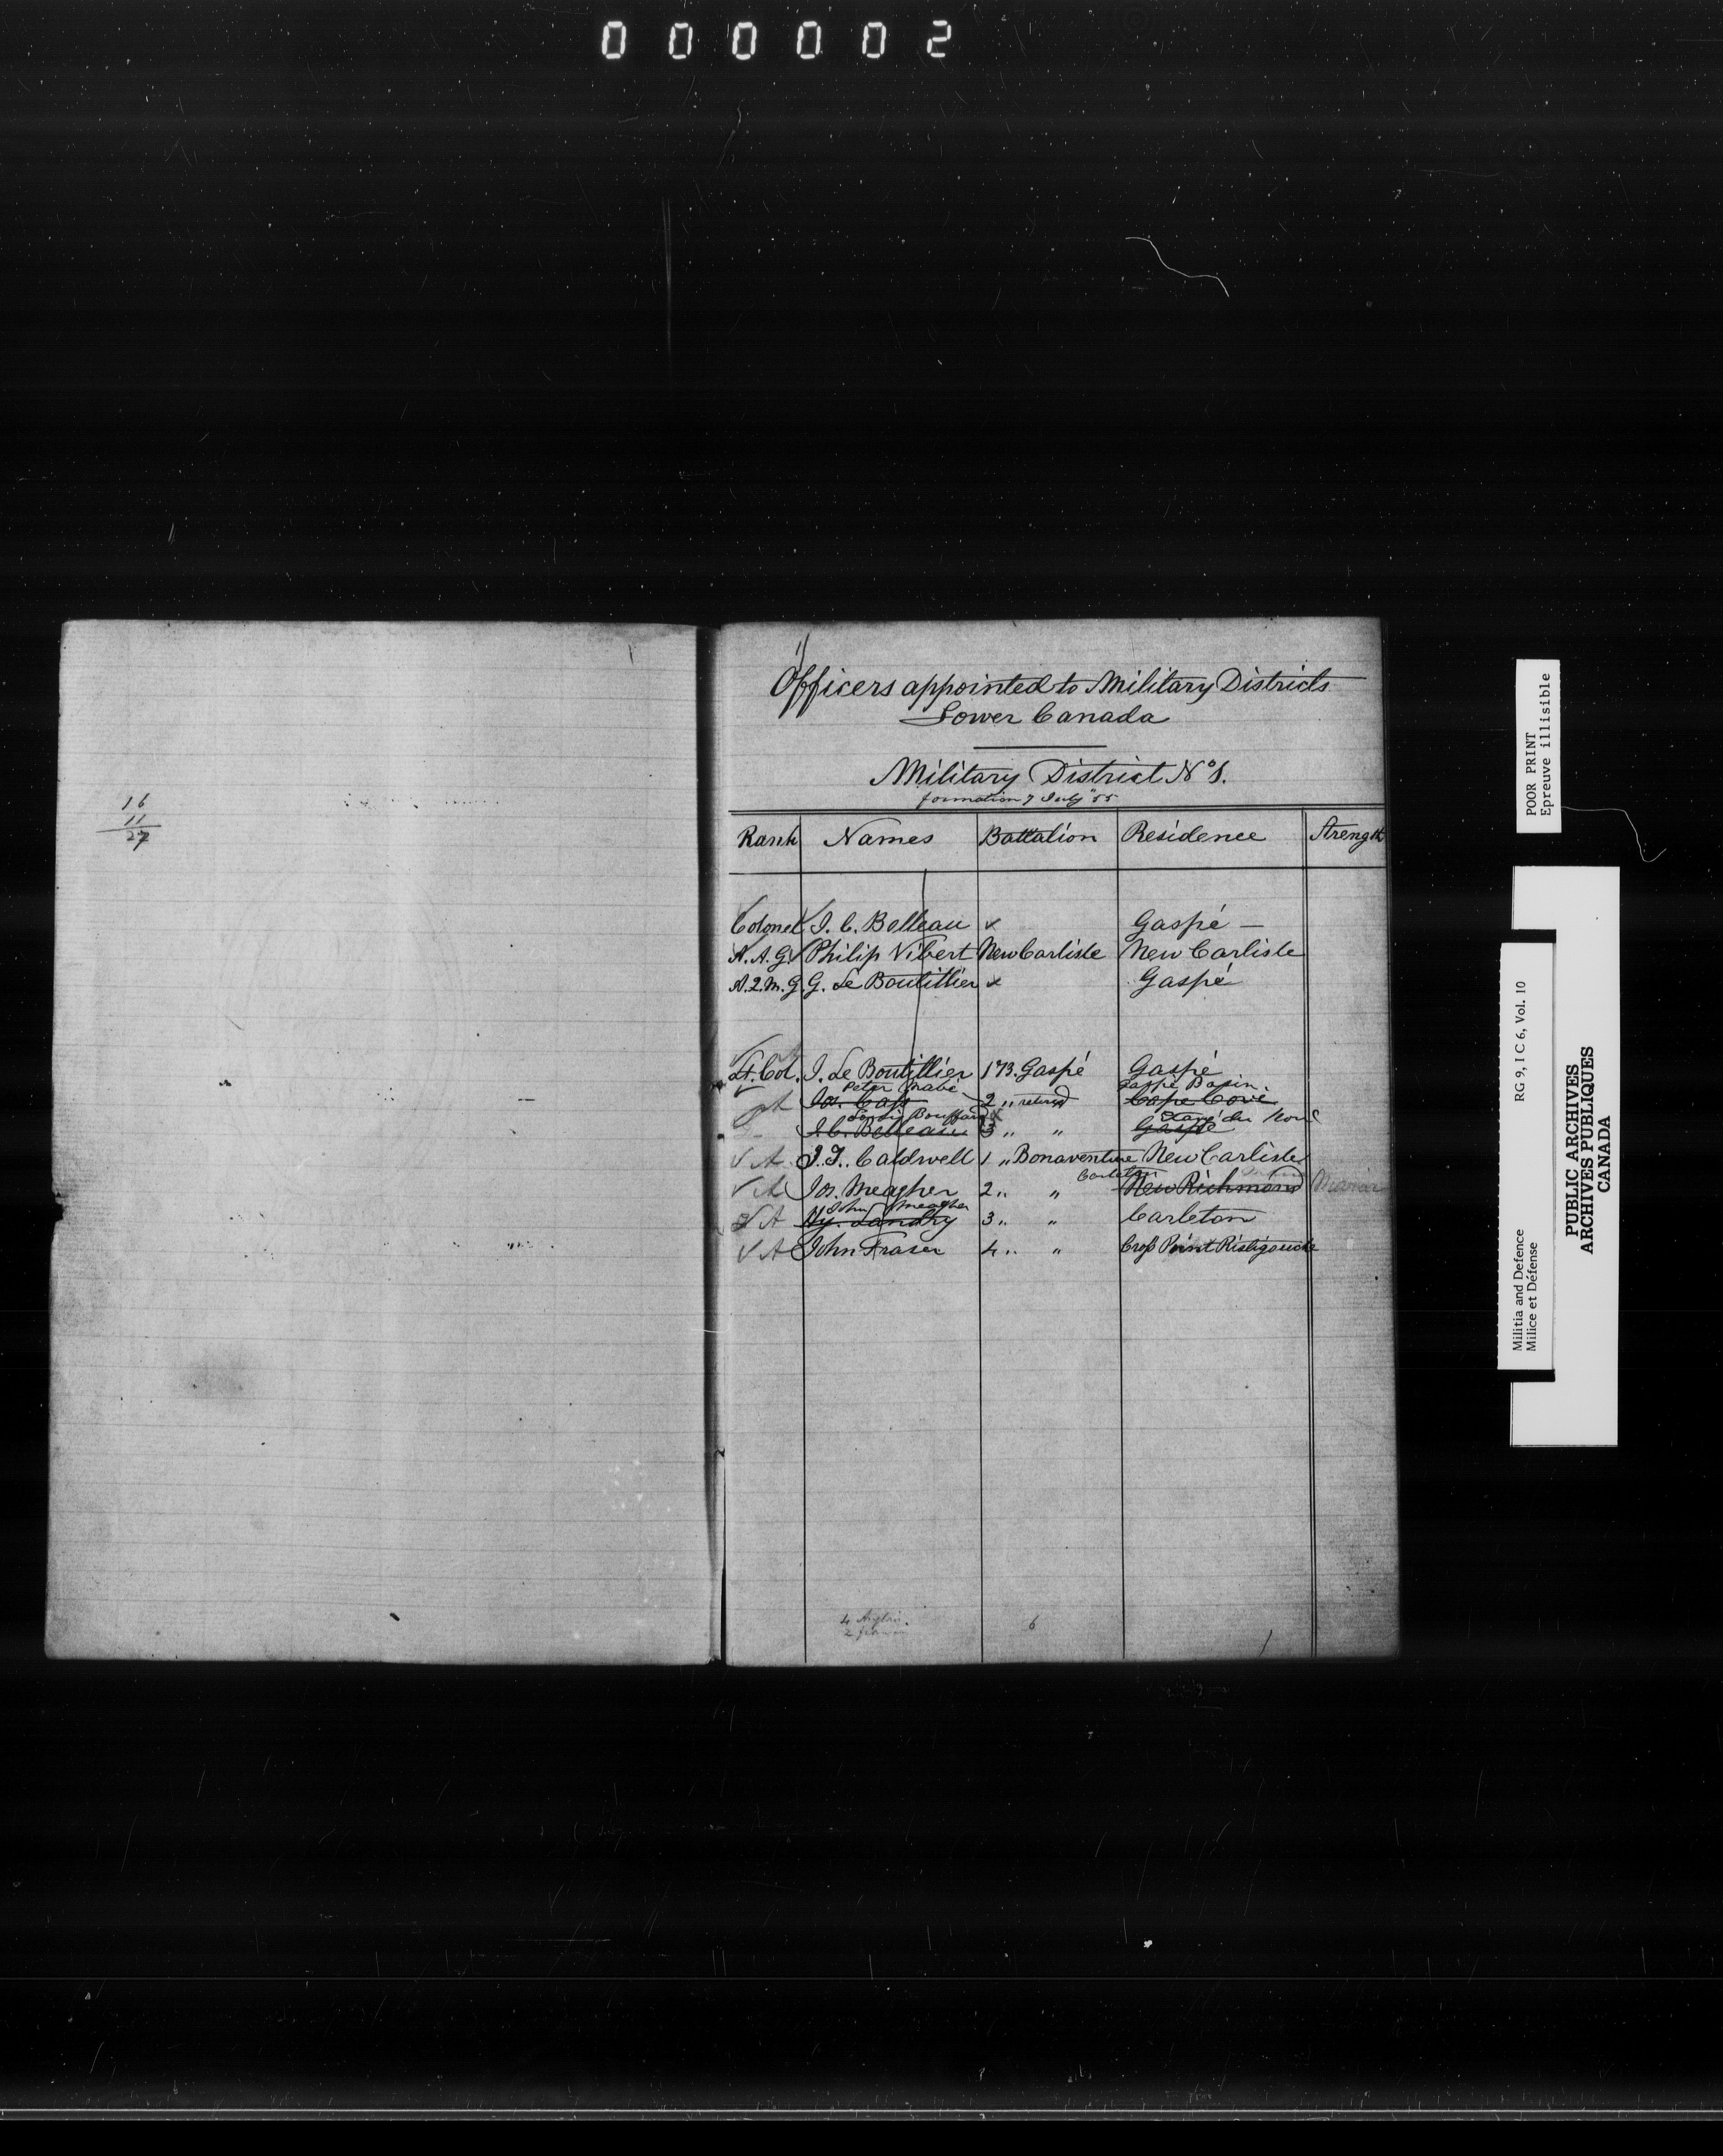 000002
16
11
27
Officers appointed to Military Districts
Lower Canada
Military District No 1.
formation 7 July "55
Rank Names Battalion Residence Strength
Colonel J. C. Belleau x Gaspé —
A. A. G. Philip Vibert New Carlisle New Carlisle
A. Q. M. G. G. Le Boutillier x Gaspé
Lt. Col. J. Le Boutillier 1 B. Gaspé Gaspé
Peter Mabé Gaspé Basin.
Jos. Cass 2 " retired Cape Cove
Louis Bouffard Etang du Nord
J. C. Belleau 3 " " Gaspé
√ A J. T. Caldwell 1 " Bonaventure New Carlisle
Carleton
√ A Jos. Meagher 2 " " New Richmond
John Meagher
√ A Hy. Landry 3 " " Carleton
√ A John Fraser 4 " " Cross Point Ristigouche
4 Anglais.
2 6
POOR PRINT
Epreuve illisible
RG 9, I C 6, Vol. 10
Militia and Defence
Milice et Défense
PUBLIC ARCHIVES
ARCHIVES PUBLIQUES
CANADA